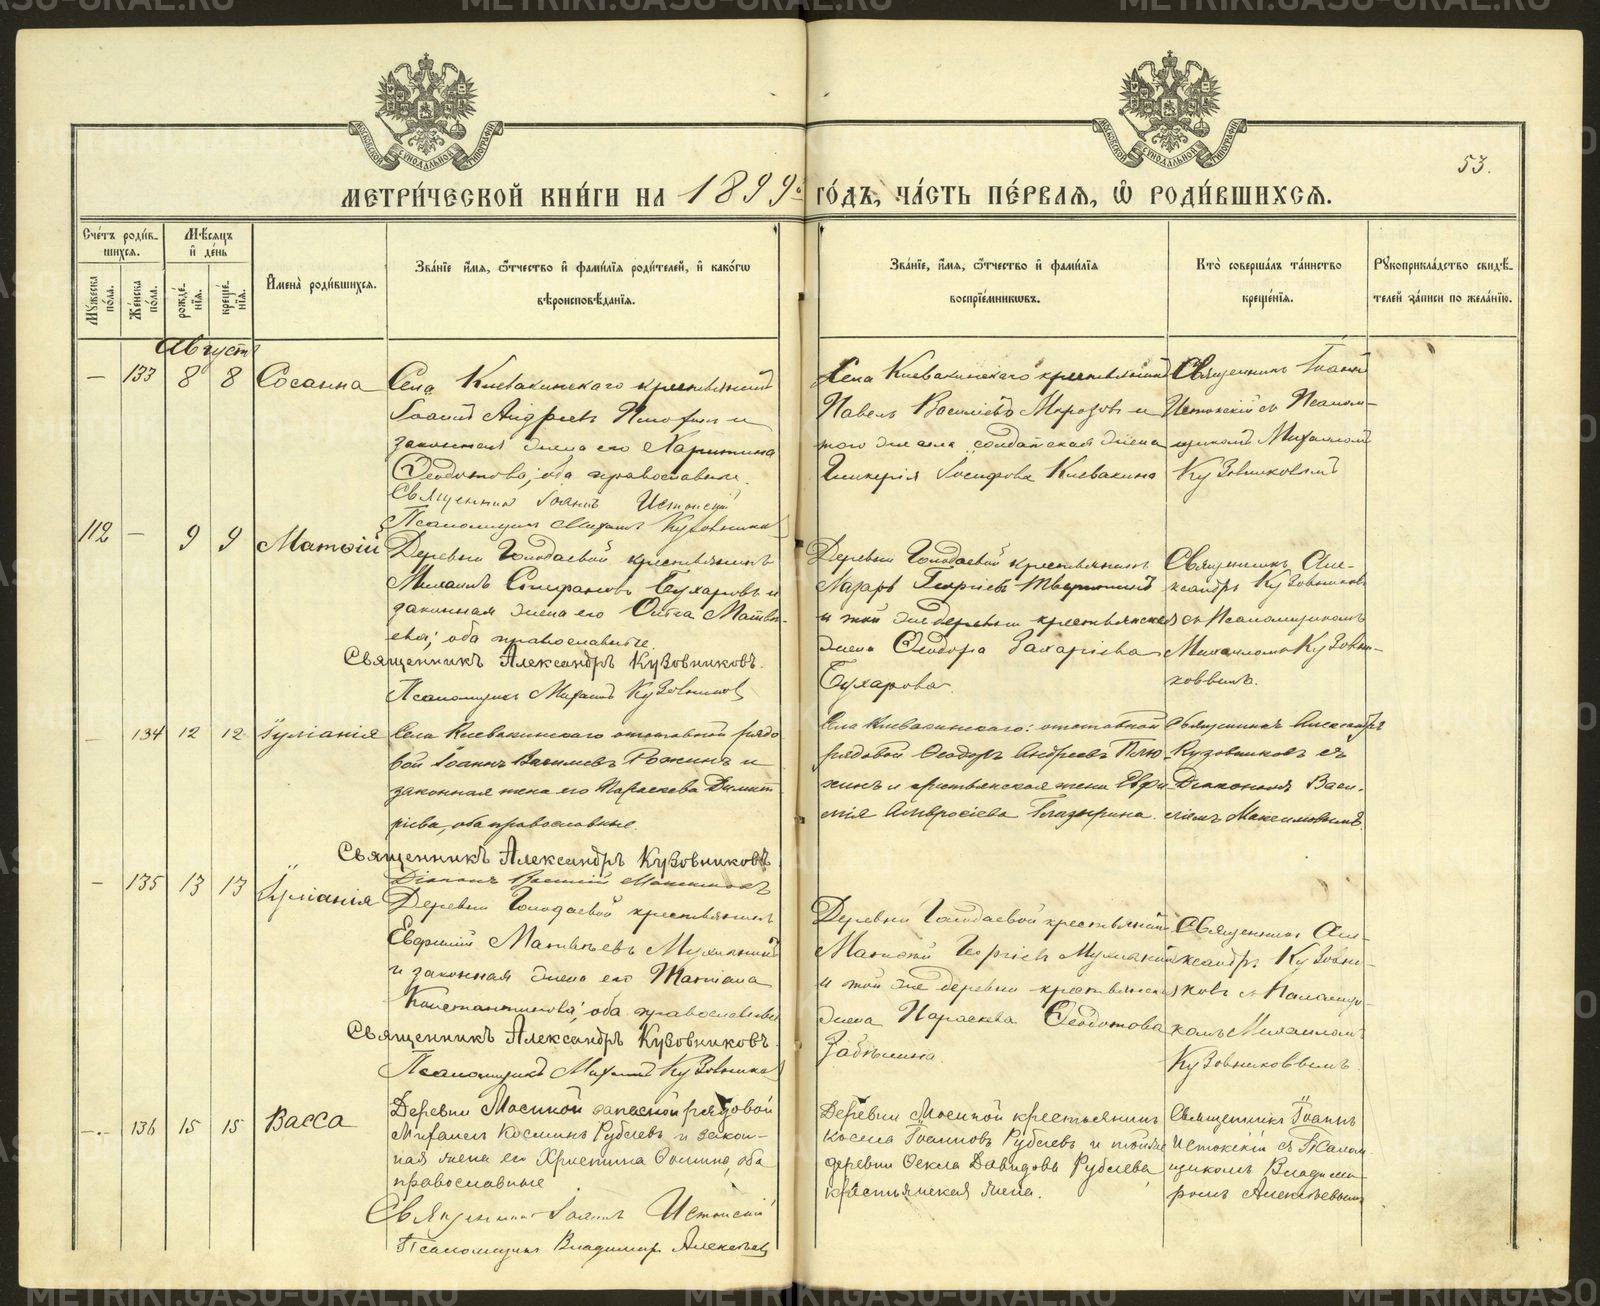 METRIKI.GASU-URAL.RU
МОСКОВСКОЙ СѴНОДАЛЬНОЙ ТИПОГРАФІИ
МОСКОВСКОЙ СѴНОДАЛЬНОЙ ТИПОГРАФІИ
53.
МЕТРИ́ЧЕСКОЙ КНИ́ГИ НА 1899 ГО́ДЪ, ЧА́СТЬ ПЕ́РВАЯ, Ѡ҆ РОДИ́ВШИХСЯ.
Сче́тъ роди́в-
шихся.
Мꙋ́жеска по́ла.
Же́нска по́ла.
Мѣ́сяцъ
и҆ де́нь
рожде́-
нїѧ.
креще́-
нїѧ.
И҆мена̀ роди́вшихся.
Зва́нїе и҆́мя, ѻ҆́тчество и҆ фами́лїя роди́телей, и҆ како́гѡ
вѣроисповѣ́данїя.
Зва́нїе, и҆́мя, ѻ҆́тчество и҆ фами́лїя
воспрїе́мникѡвъ.
Кто̀ соверша́лъ та́инство
креще́нїя.
Рꙋкоприкла́дство свидѣ́-
телей за́писи по жела́нїю.
Августъ
— 133 8 8 Сосанна
Села Киевакинскаго крестьянинъ
Іоаннъ Андреевъ и
законная жена его Харитина
Ѳеодотова, оба православные.
Священник Іоаннъ Истокскій
Псаломщик Михаил Кузовников
Села Киевакинскаго крестьянинъ
Павелъ Василіевъ Морозов и
того же села солдатская жена
Гликерія Іосифова Киевакина
Священникъ Іоаннъ
Истокскій съ Псалом-
щикомъ Михаиломъ
Кузовниковымъ
112 — 9 9 Матѳій
Деревни Голодаевой крестьянинъ
Михаилъ Стефановъ Бухаровъ и
законная жена его Ольга Матвѣ-
ева; оба православные.
Священникъ Александръ Кузовниковъ.
Псаломщикъ Михаилъ Кузовников
Деревни Голодаевой крестьянинъ
Лазарь Георгіевъ
и той же деревни крестьянская
жена Ѳеодора Захаріева
Бухарова.
Священникъ Але-
ксандръ Кузовников
съ Псаломщикомъ
Михаиломъ Кузовни-
ковымъ.
— 134 12 12 Іуліанія
Села Киевакинскаго отставной рядо
вой Іоаннъ Васильевъ Рожинъ и
законная жена его Параскева Димит
ріева, оба православные.
Священникъ Александръ Кузовниковъ
Діаконъ Василій Максимовъ
Села Киевакинскаго: отставной
рядовой Ѳеодоръ Андреевъ Плю
хинъ и крестьянская жена Евфи
мія Амвросіева Глазырина.
Священникъ Александръ
Кузовниковъ съ
Діакономъ Васи-
ліемъ Максимовымъ.
— 135 13 13 Іуліанія
Деревни Голодаевой крестьянинъ
Евфимій Матвѣевъ
и законная жена его Татіана
Константинова; оба православные
Священникъ Александръ Кузовниковъ.
Псаломщикъ Михаилъ Кузовников
Деревни Голодаевой крестьянинъ
Георгіевъ
и той же деревни крестьянская
жена Параскева Ѳеодотова
Забѣлина.
Священникъ Але-
ксандръ Кузовни-
ковъ съ Псаломщи-
комъ Михаиломъ
Кузовниковымъ.
—.— 136 15 15 Васса
Деревни Мосиной запасной рядовой
Михаилъ Косминъ Рублевъ и закон-
ная жена его Христина Ѳомина, оба
православные
Священникъ Іоаннъ Истокскій
Псаломщикъ Владимир Алексѣев
Деревни Мосиной крестьянинъ
Косма Іоанновъ Рублевъ и той же
деревни Ѳекла Давидова Рублева
крестьянская жена.
Священникъ Іоаннъ
Истокскій съ Псалом
щикомъ Владими-
ромъ Алексѣевымъ